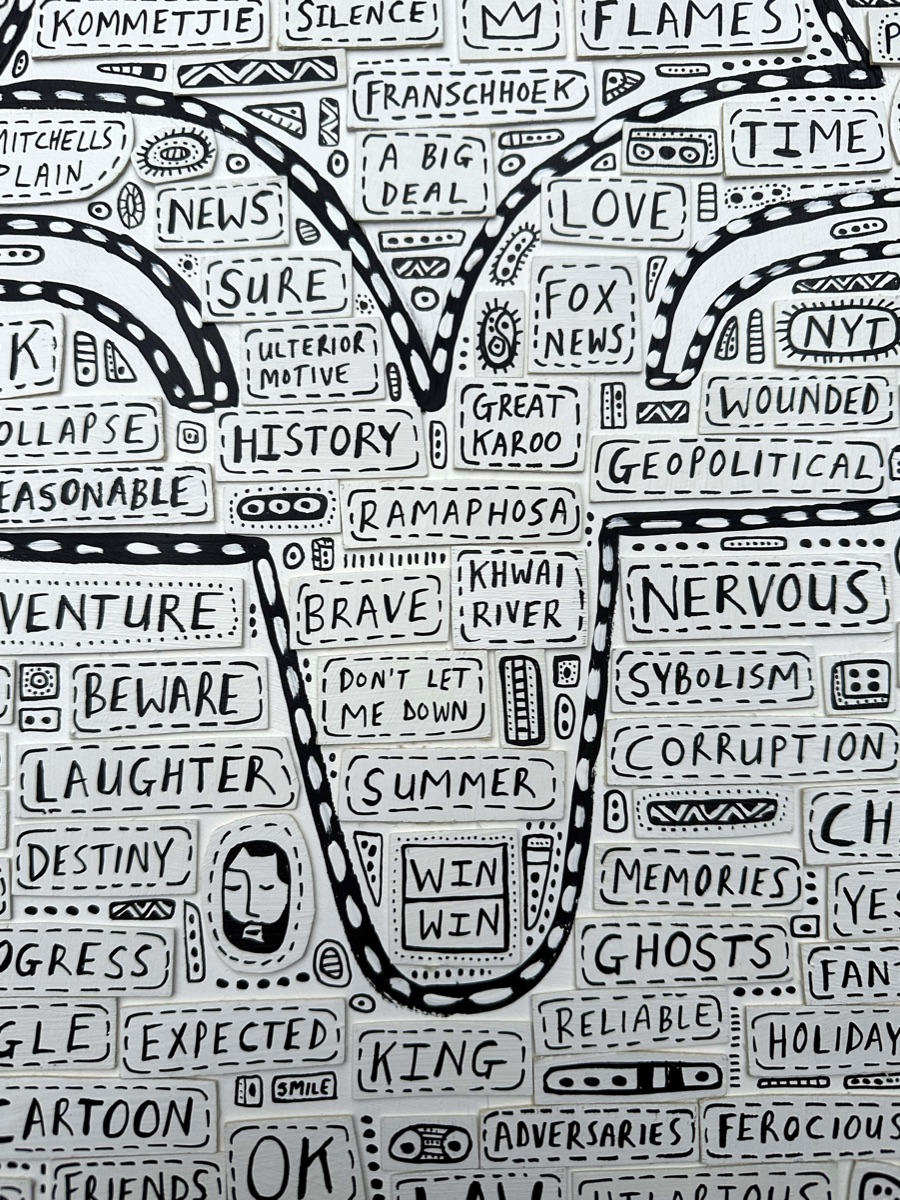 KOMMETJIE
SILENCE
FLAMES
FRANSCHHOEK
MITCHELLS
PLAIN
A BIG
DEAL
TIME
NEWS
LOVE
SURE
FOX
NEWS
NYT
K
ULTERIOR
MOTIVE
GREAT
KAROO
WOUNDED
OLLAPSE
HISTORY
GEOPOLITICAL
EASONABLE
RAMAPHOSA
VENTURE
BRAVE
KHWAI
RIVER
NERVOUS
BEWARE
DON'T LET
ME DOWN
SYBOLISM
LAUGHTER
SUMMER
CORRUPTION
CH
DESTINY
WIN
WIN
MEMORIES
YES
OGRESS
GHOSTS
FAN
GLE
EXPECTED
KING
RELIABLE
HOLIDAY
SMILE
CARTOON
OK
ADVERSARIES
FEROCIOUS
FRIENDS
HILARIOUS